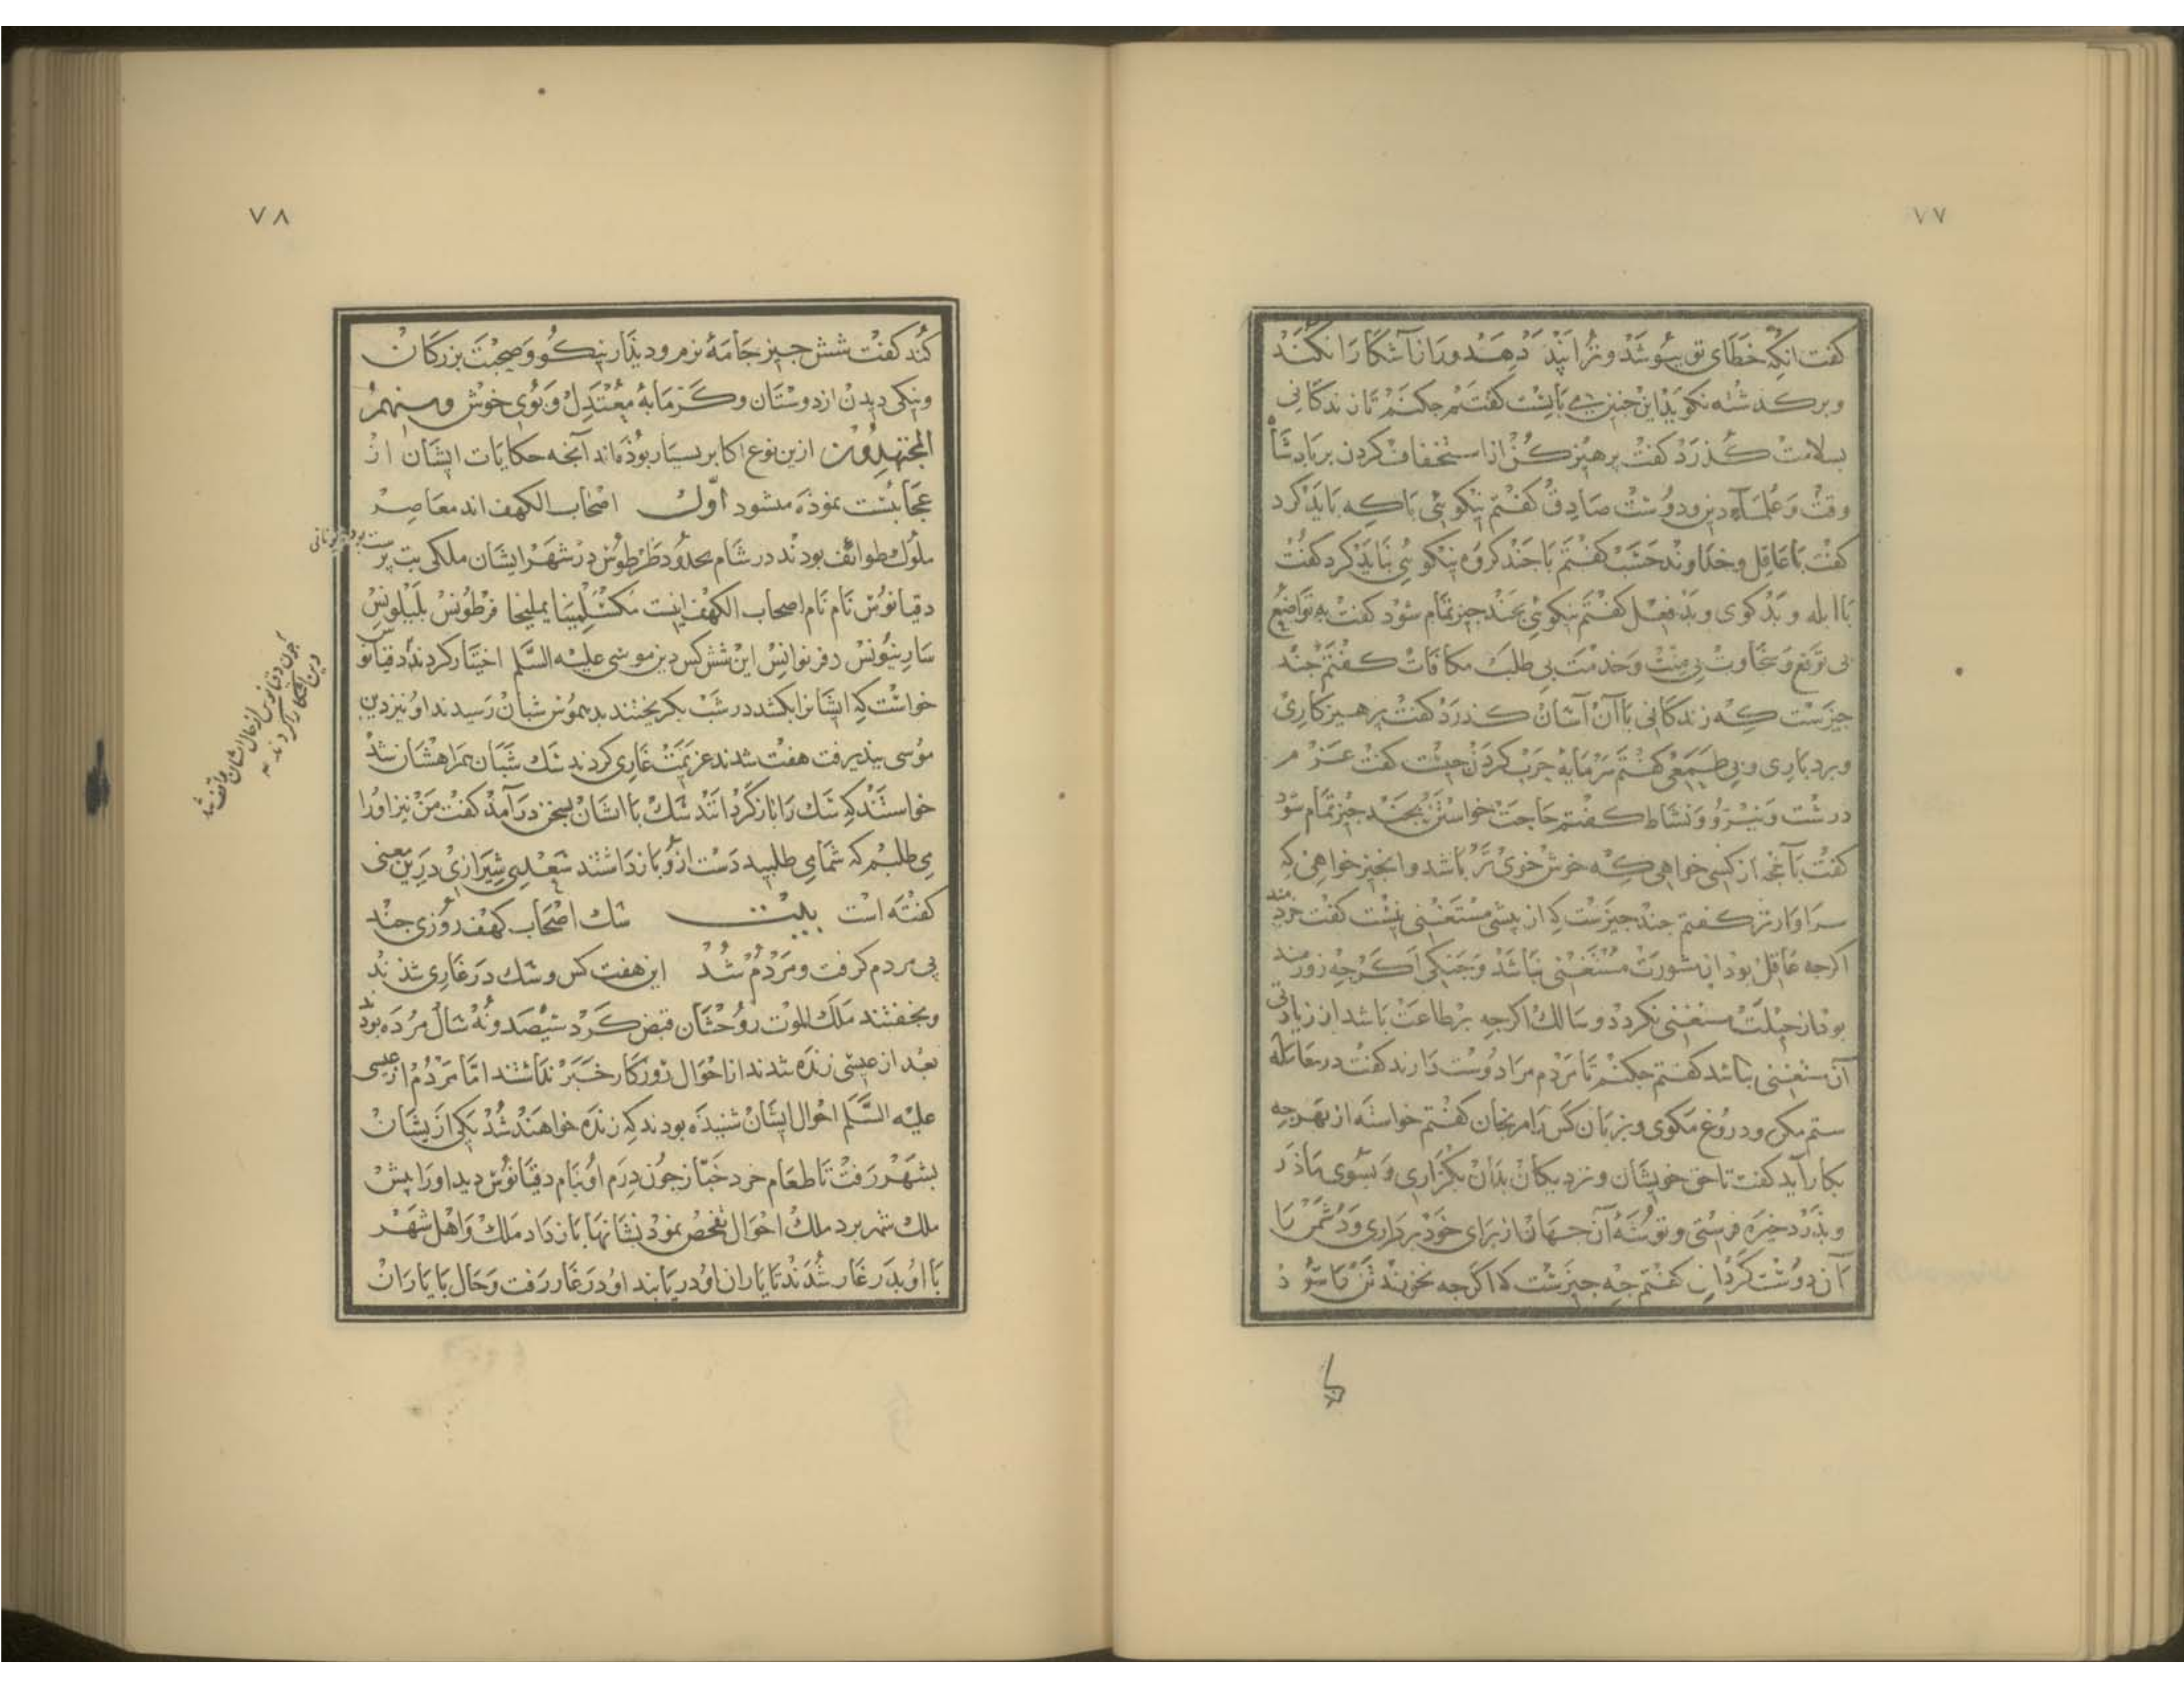 ۷۷
كفت انكه خطای تو بپوشد و ترا پند دهد و راز آشكارا نكند
و بر كذشته نكويد این جنین می بایست كفتم جكنم تا زندكانی
بسلامت كذرد كفت پرهیز كن از استخفاف كردن بر پادشاه
وقت و علماء دین و دوست صادق كفتم نیكوئی با كه باید كرد
كفت با عاقل و خداوند حسب كفتم با جند كروه نیكوئی نباید كرد كفت
با ابله و بدكوی و بد فعل كفتم نیكوئی بجند جیز تمام شود كفت به تواضع
بی توقع و سخاوت بی منت و خدمت بی طلب مكافات كفتم جند
جیزست كه زندكانی با آن آسان كذرد كفت پرهیزكاری
و بردباری و بی طمعی كفتم سرمایهٔ حرب كردن جیست كفت عزم
درست و نیرو و نشاط كفتم حاجت خواستن بجند جیز تمام شود
كفت بآنجه از كسی خواهی كه خوش خوی تر باشد و انجیز خواهی كه
سزاوارتر كفتم جند جیزست كه از پیشی مستغنی نیست كفت خردمند
اكرجه عاقل بود از مشورت مستغنی نباشد و جنكی اكرجه زورمند
بود از حیلت مستغنی نكردد و سالك اكرجه بر طاعت باشد از زیادتی
آن مستغنی نباشد كفتم جكنم تا مردم مرا دوست دارند كفت در معامله
ستم مكن و دروغ مكوی و بزبان كس را مرنجان كفتم خواسته از بهر جه
بكار آید كفت تا حق خویشان و نزدیكان بدان بكزاری و بسوی ماذر
و پذر ذخیره فرستی و توشهٔ آن جهان از برای خود برداری و دشمن با
آن دوست كردانی كفتم جه جیزست كه اكرجه نخورند تن را سود
۷۸
كند كفت شش جیز جامهٔ نرم و دیذار نیكو و صحبت بزركان
و نیكی دیدن از دوستان و كرمابهٔ معتدل و بوی خوش ومنهم
المجتهدون ازین نوع اكابر بسیار بوذه اند آنجه حكایات ایشان از
عجایبست نموذه میشود اول اصحاب الكهف اند معاصر
ملوك طوائف بودند در شام بحدود طرطوس در شهر ایشان ملكی بت پرست بود یونانی
دقیانوس نام نام اصحاب الكهف اینست مكسلمینا یملیخا فرطونس بلیلونس
سارنیونس دفرنوانس این شش كس دین موسی علیه السلم اختیار كردند دقیانوس
خواست كه ایشانرا بكشد در شب بكریختند بدیموس شبان رسیدند او نیز دین
موسی بپذیرفت هفت شدند عزیمت غاری كردند سك شبان همراهشان شد
خواستند كه سك را باز كردانند سك با ایشان بسخن درآمد كفت من نیز او را
می طلبم كه شما می طلبید دست از و بازداشتند سعدی شیرازی درین معنی
كفته است بیت سك اصحاب كهف روزی جند
پی مردم كرفت و مردم شد این هفت كس و سك در غاری شدند
و بخفتند ملك الموت روحشان قبض كرد سیصد و نه سال مرده بودند
بعد از عیسی زنده شدند از احوال روزكار خبر نداشتند اما مردم از عیسی
علیه السلم احوال ایشان شنیده بودند كه زنده خواهند شد یكی از یشان
بشهر رفت تا طعام خرد خباز جون درم او بنام دقیانوس دید او را پیش
ملك شهر برد ملك احوال تفحص نمود نشانها باز داد ملك و اهل شهر
با او بدر غار شدند تا یاران او دریابند او در غار رفت و حال با یاران
جون دقیانوس از حال ایشان واقف شد